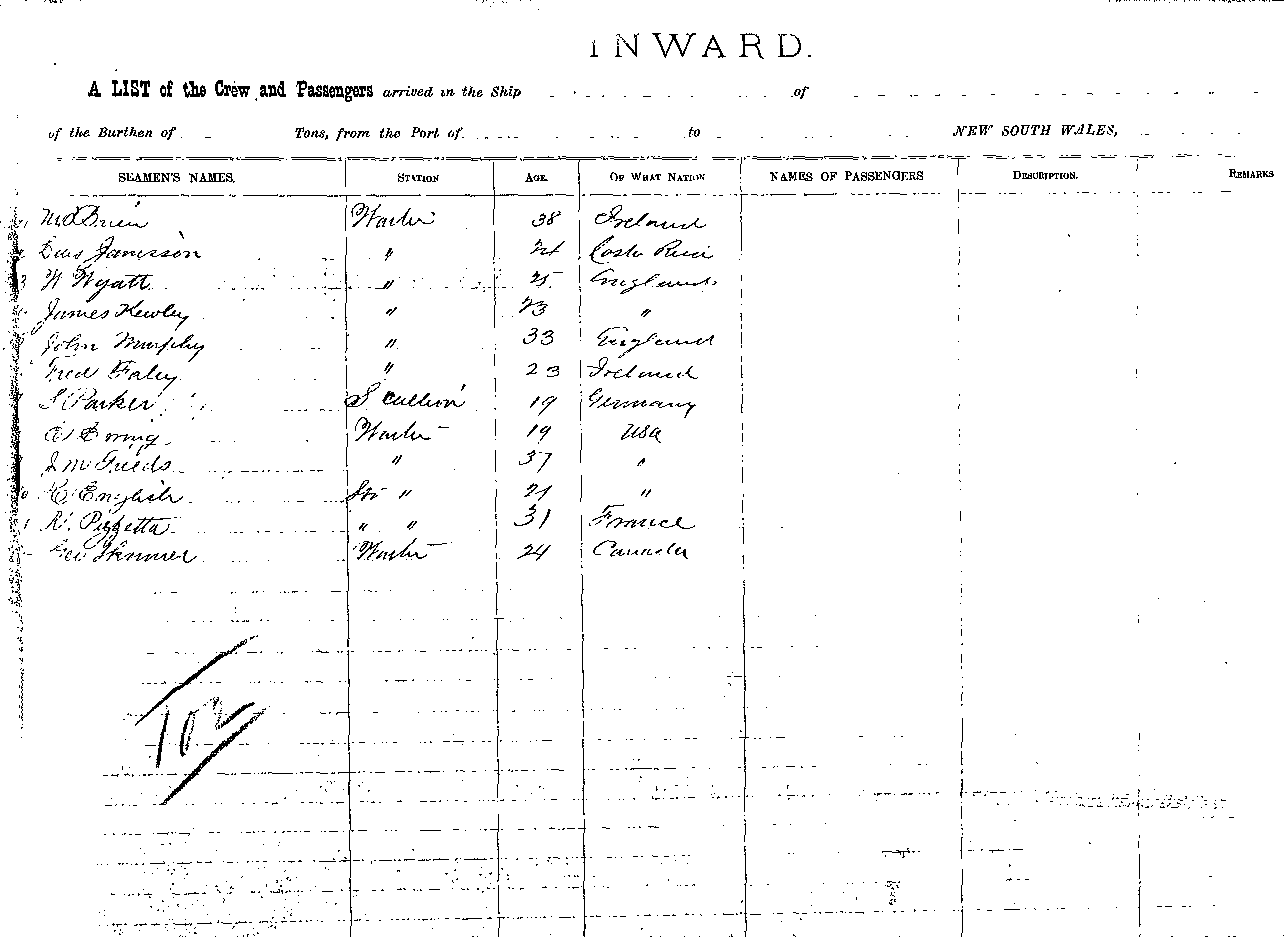 INWARD.
A LIST of the Crew and Passengers arrived in the Ship of
of the Burthen of Tons, from the Port of to NEW SOUTH WALES,
SEAMEN'S NAMES. STATION AGE. OF WHAT NATION NAMES OF PASSENGERS DESCRIPTION. REMARKS
Waiter 38 Ireland
" 24 Costa Rica
3 W Wyatt " 25 England
James Hewley " 23 "
John Murphy " 33 England
Fred Faley " 23 Ireland
S Parker Scullion 19 Germany
Waiter 19 USA
" 37 "
English " 21 "
" " 31 France
Geo Skinner Waiter 24 Canada
102